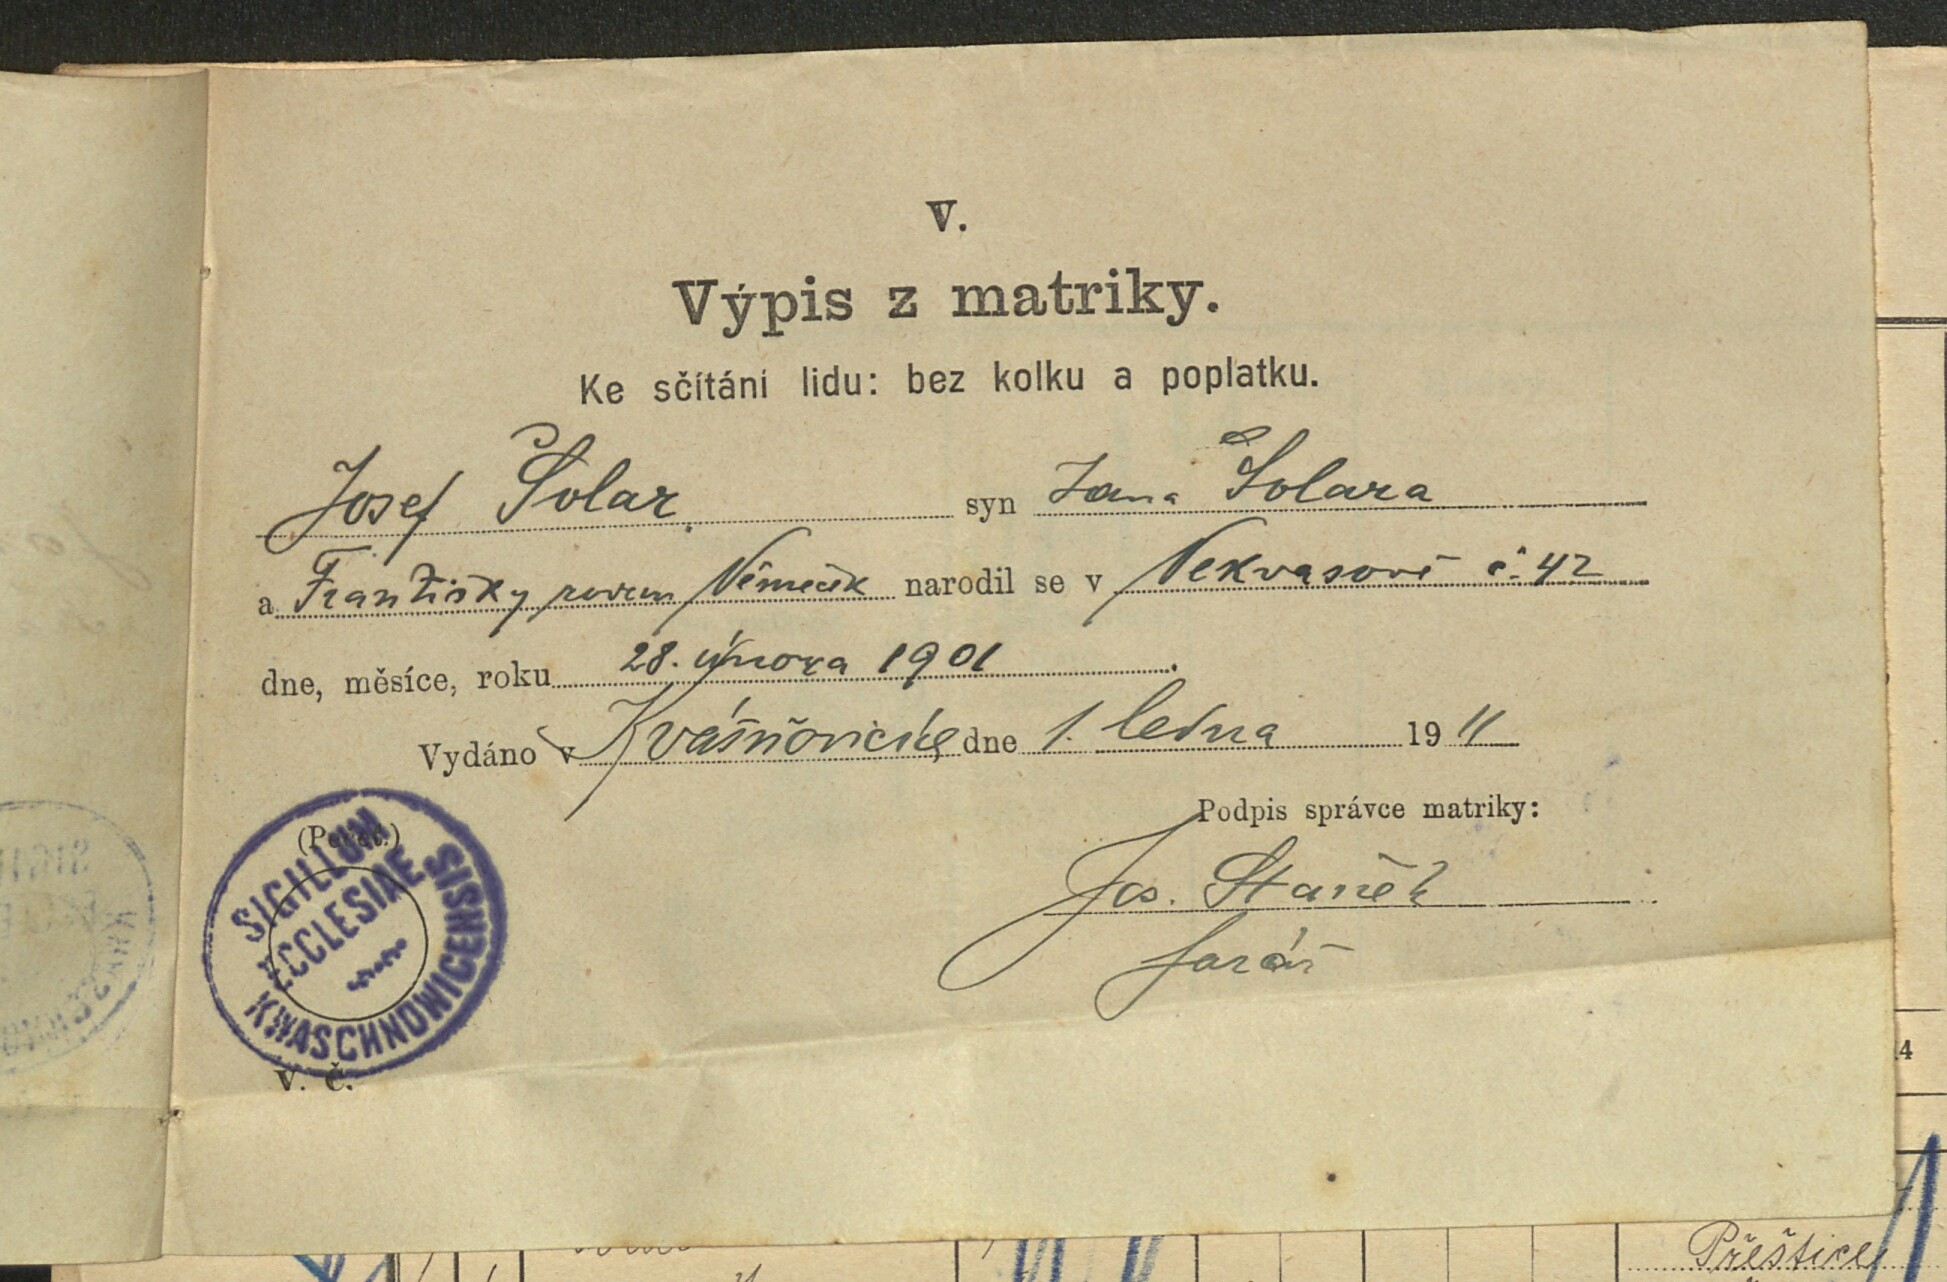 V.
Výpis z matriky.
Ke sčítání lidu: bez kolku a poplatku.
Josef Šolar syn Jana Šolara
a Františky rozen Němeček narodil se v Nekvasově č. 42
dne, měsíce, roku 28. února 1901.
Vydáno v Kvášňovicích dne 1. ledna 1911
Podpis správce matriky:
(Pečeť.)
SIGILLUM
ECCLESIAE
KWASCHNOWICENSIS
Jos. Staněk
farář
V. Č.
4
Přeštice